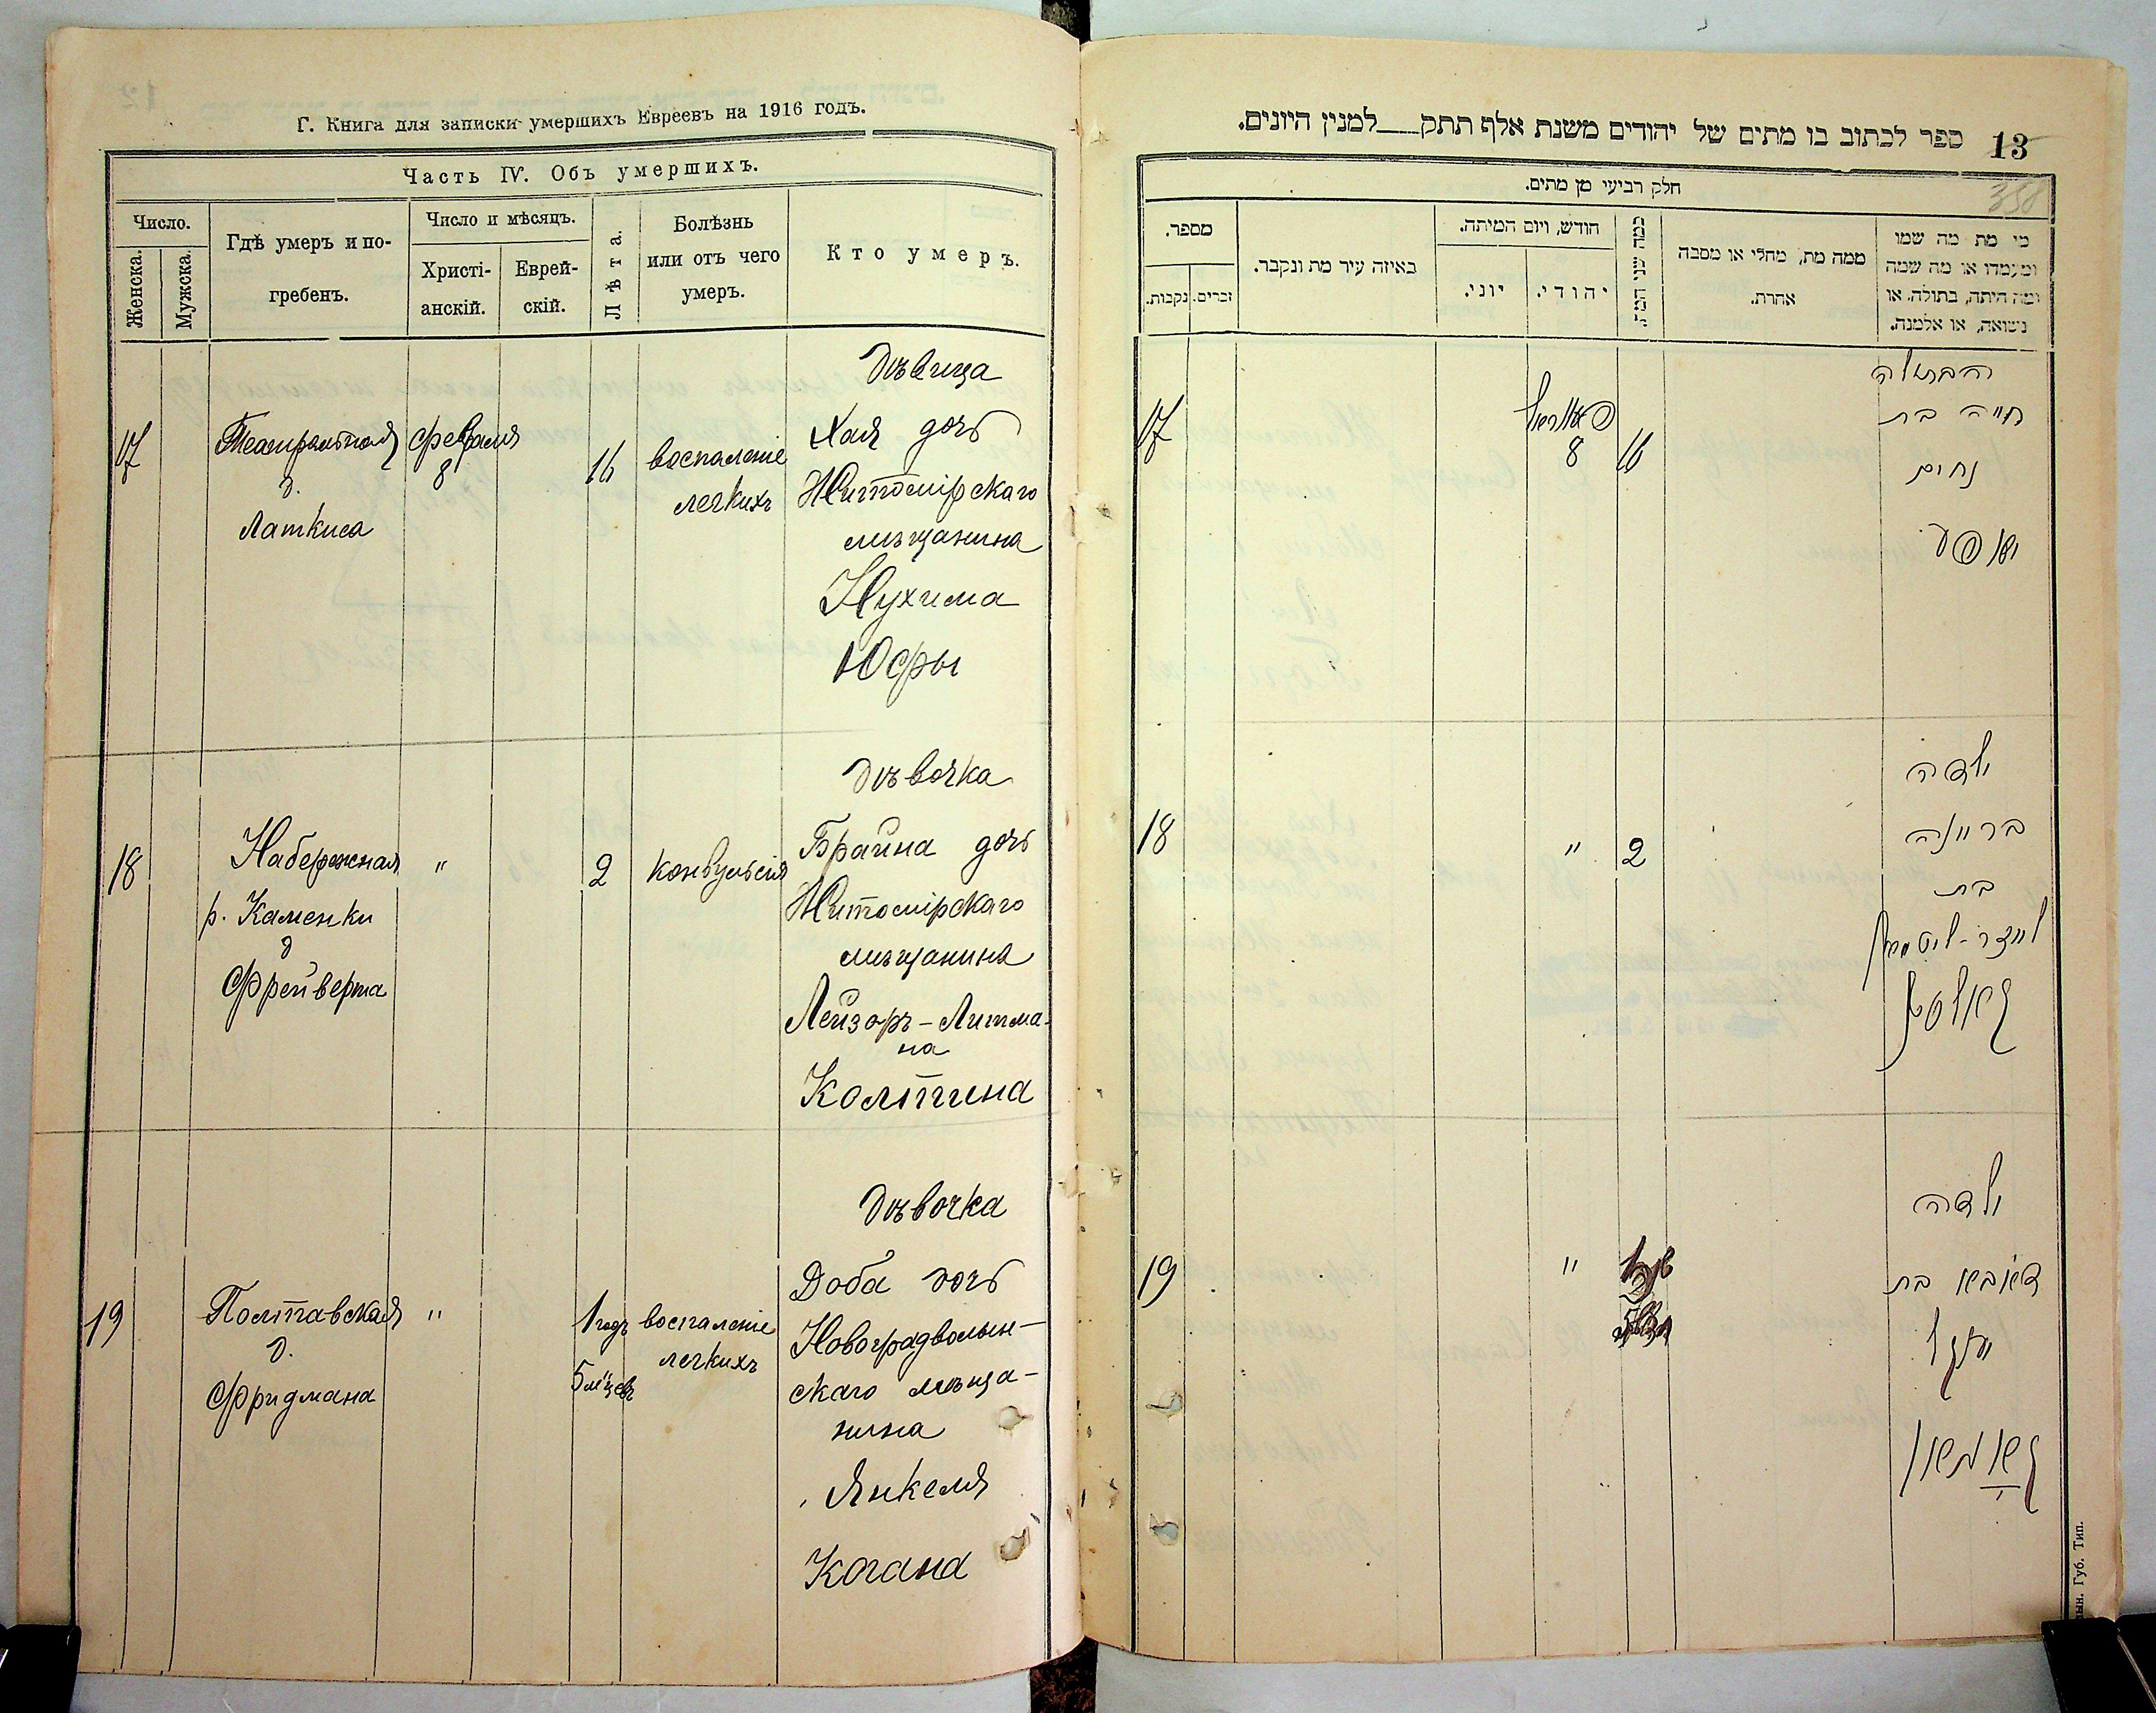 Г. Книга для записки умершихъ Евреевъ на 1916 годъ.
Часть IV. Объ умершихъ.
Число.
Женска.
Мужска.
Гдѣ умеръ и по-
гребенъ.
Число и мѣсяцъ.
Христі-
анскій.
Еврей-
скій.
Лѣта.
Болѣзнь
или отъ чего
умеръ.
Кто умеръ.
17
Театральная
д.
Латкиса
февраля
8
16
воспаленіе
легкихъ
Дѣвица
Хая дочь
Житомірскаго
мѣщанина
Нухима
Юфры
18
Набережная
р. Каменки
д
Фрейверта
"
2
конвульсія
Дѣвочка
Брайна дочь
Житомірскаго
мѣщанина
Лейзоръ-Литма-
на
Колтина
19
Полтавская
д.
Фридмана
"
1 годъ
5 м-цевъ
воспаленіе
легкихъ
Дѣвочка
Доба дочь
Новоградволын-
скаго мѣща-
нина
Янкеля
Когана
13
ספר לכתוב בו מתים של יהודים משנת אלף תתק___למנין היונים.
358
חלק רביעי מן מתים.
מספר.
נקבות.
זכרים.
באיזה עיר מת ונקבר.
חודש, ויום המיתה.
יוני.
יהודי.
כמה שני המת.
ממה מת, מחלי או מסבה
אחרת.
מי מת מה שמו
ומעמדו או מה שמה
ומה היתה, בתולה, או
נשואה, או אלמנה.
17
8
16
הבתולה
חייה בת
נחום
יופע
18
"
2
ילדה
בריינה
בת
לייזר-ליטמאן
קאלטין
19
"
ילדה
דאבא בת
יענקל
קאגאן
Губ. Тип.